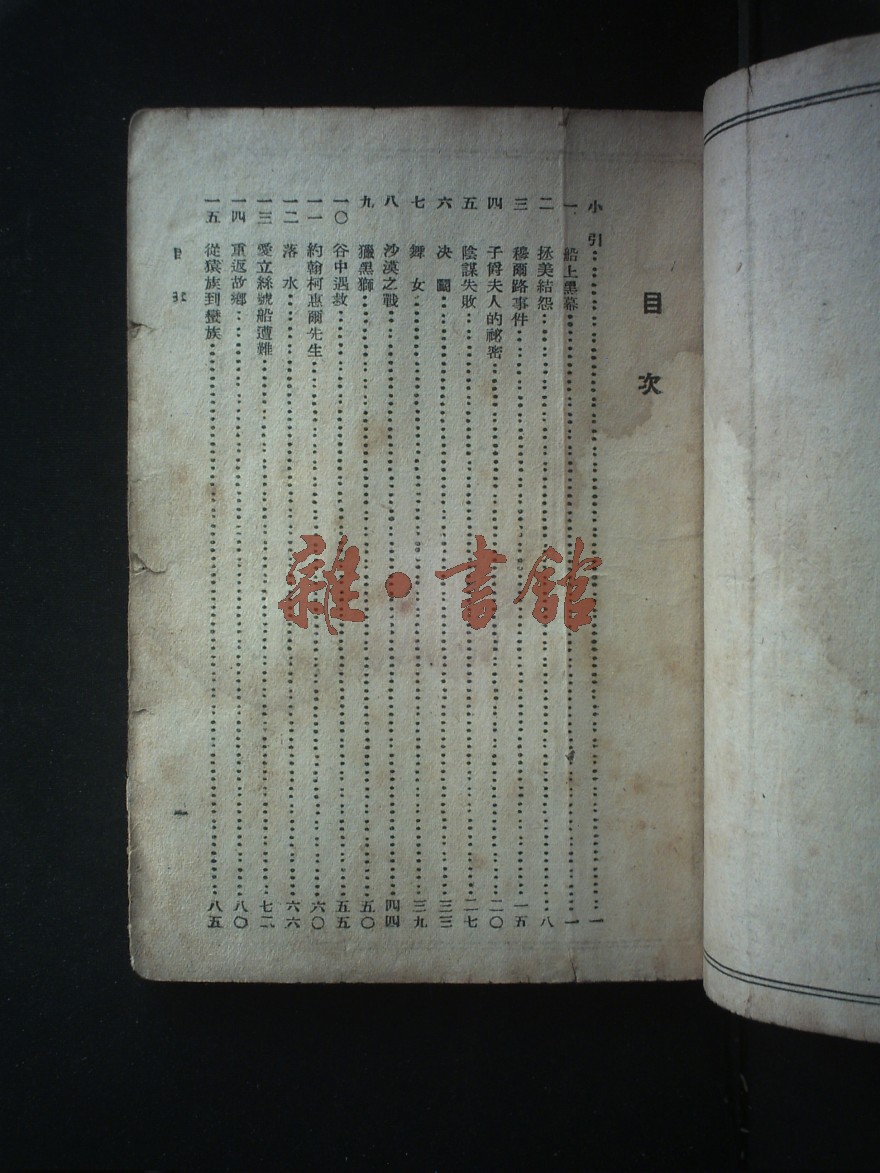 目次
小引……一
一 船上黑幕……一
二 拯美結怨……八
三 穆爾路事件……一五
四 子爵夫人的祕密……二〇
五 陰謀失敗……二七
六 決鬭……三三
七 舞女……三九
八 沙漠之戰……四四
九 獵黑獅……五〇
一〇 谷中遇救……五五
一一 約翰柯惠爾先生……六〇
一二 落水……六六
一三 愛立絲號船遭難……七二
一四 重返故鄉……八〇
一五 從猿族到蠻族……八五
目次
一
雜·書館